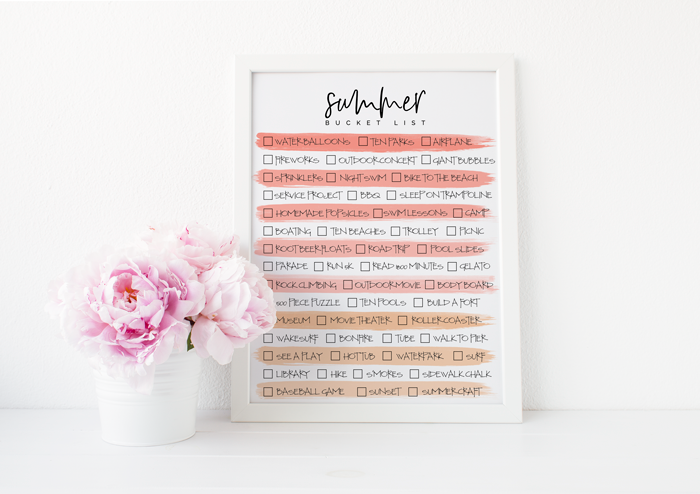 summer
BUCKET LIST
WATER BALLOONS TEN PARKS AIRPLANE
FIREWORKS OUTDOOR CONCERT GIANT BUBBLES
SPRINKLERS NIGHT SWIM BIKE TO THE BEACH
SERVICE PROJECT BBQ SLEEP ON TRAMPOLINE
HOMEMADE POPSICLES SWIM LESSONS CAMP
BOATING TEN BEACHES TROLLEY PICNIC
ROOT BEER FLOATS ROAD TRIP POOL SLIDES
PARADE RUN 5K READ 1800 MINUTES GELATO
ROCK CLIMBING OUTDOOR MOVIE BODY BOARD
500 PIECE PUZZLE TEN POOLS BUILD A FORT
MUSEUM MOVIE THEATER ROLLER COASTER
WAKESURF BONFIRE TUBE WALK TO PIER
SEE A PLAY HOT TUB WATERPARK SURF
LIBRARY HIKE S'MORES SIDEWALK CHALK
BASEBALL GAME SUNSET SUMMER CRAFT